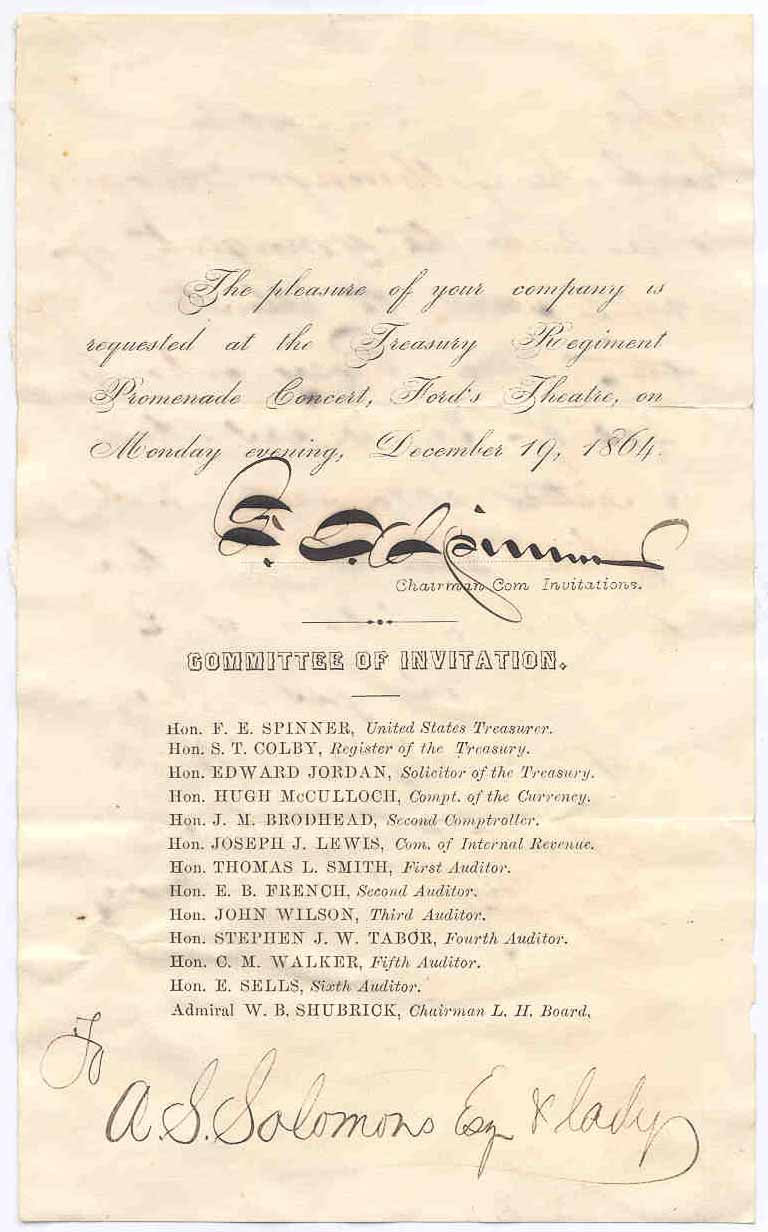 The pleasure of your company is
requested at the Treasury Regiment
Promenade Concert, Ford's Theatre, on
Monday evening, December 19, 1864.
F. E. Spinner
Chairman Com Invitations.
COMMITTEE OF INVITATION.
Hon. F. E. SPINNER, United States Treasurer.
Hon. S. T. COLBY, Register of the Treasury.
Hon. EDWARD JORDAN, Solicitor of the Treasury.
Hon. HUGH McCULLOCH, Compt. of the Currency.
Hon. J. M. BRODHEAD, Second Comptroller.
Hon. JOSEPH J. LEWIS, Com. of Internal Revenue.
Hon. THOMAS L. SMITH, First Auditor.
Hon. E. B. FRENCH, Second Auditor.
Hon. JOHN WILSON, Third Auditor.
Hon. STEPHEN J. W. TABOR, Fourth Auditor.
Hon. C. M. WALKER, Fifth Auditor.
Hon. E. SELLS, Sixth Auditor.
Admiral W. B. SHUBRICK, Chairman L. H. Board.
To
A. S. Solomons Esq & lady